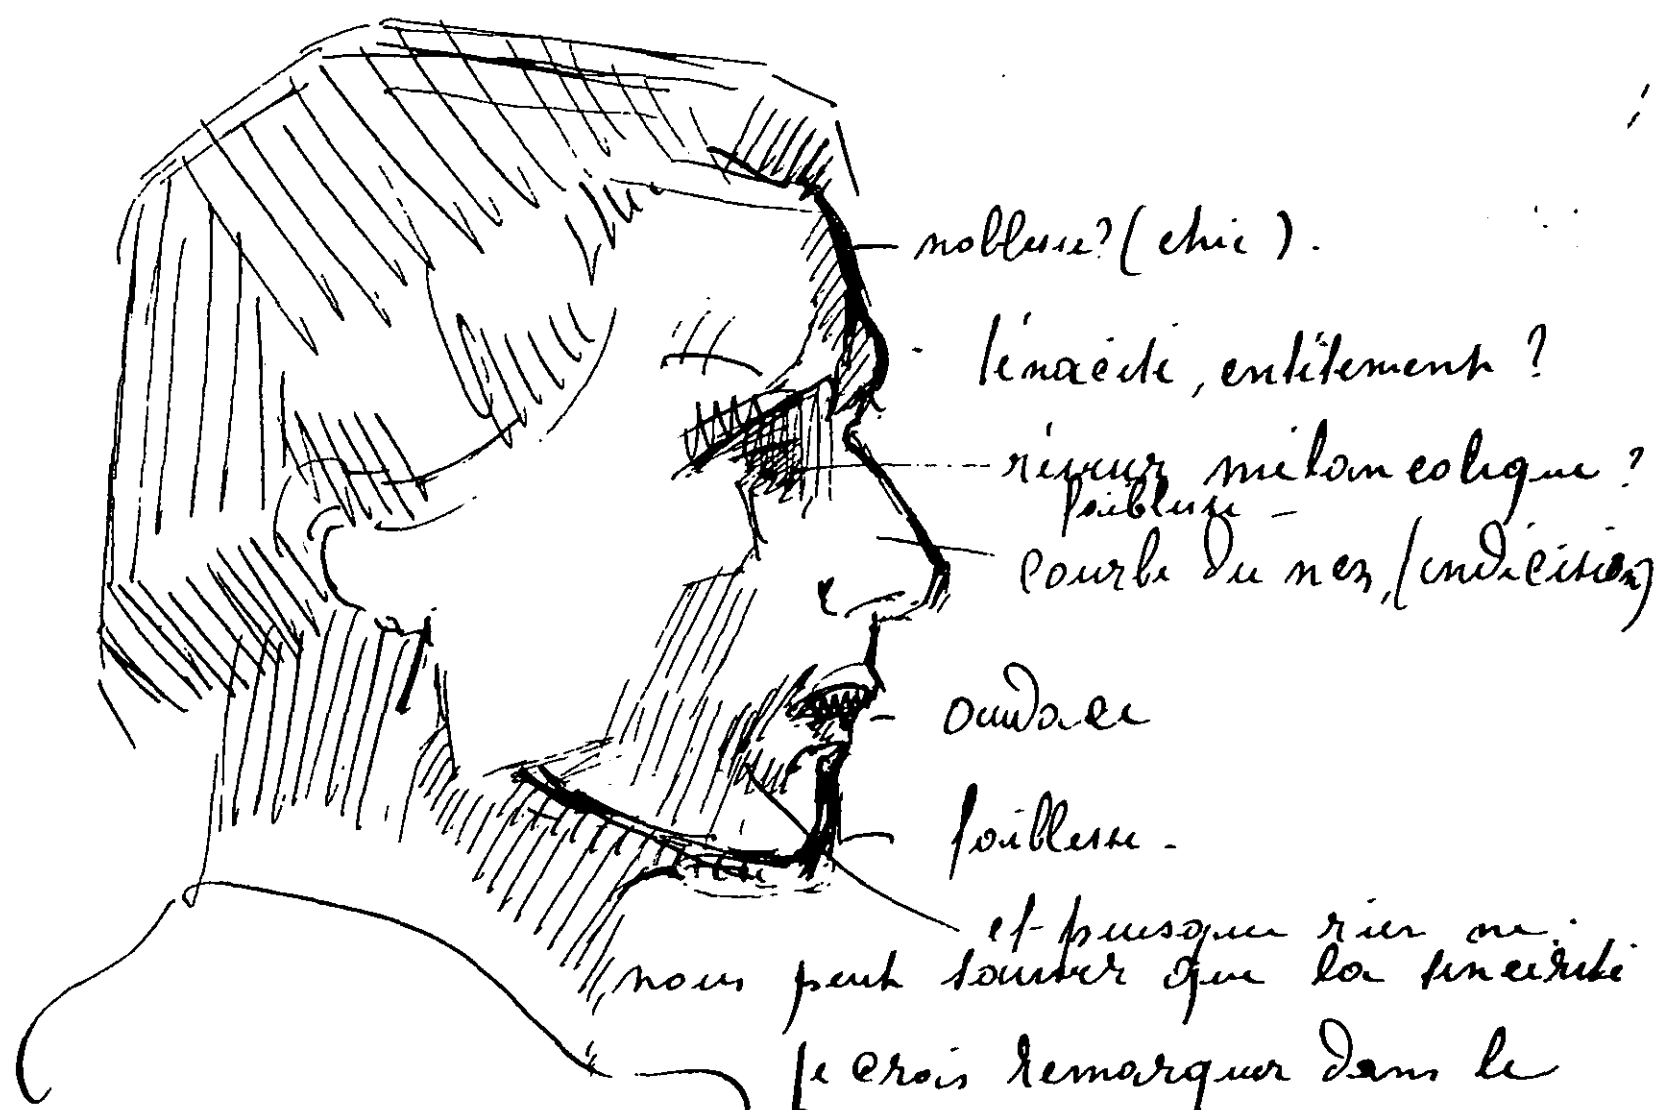 noblesse? (chic).
ténacité, entêtement ?
rêveur mélancolique ?
faiblesse -
courbe du nez, (indécision)
audace
faiblesse -
et puisque rien ne
nous peut sauver que la sincérité
je crois remarquer dans le